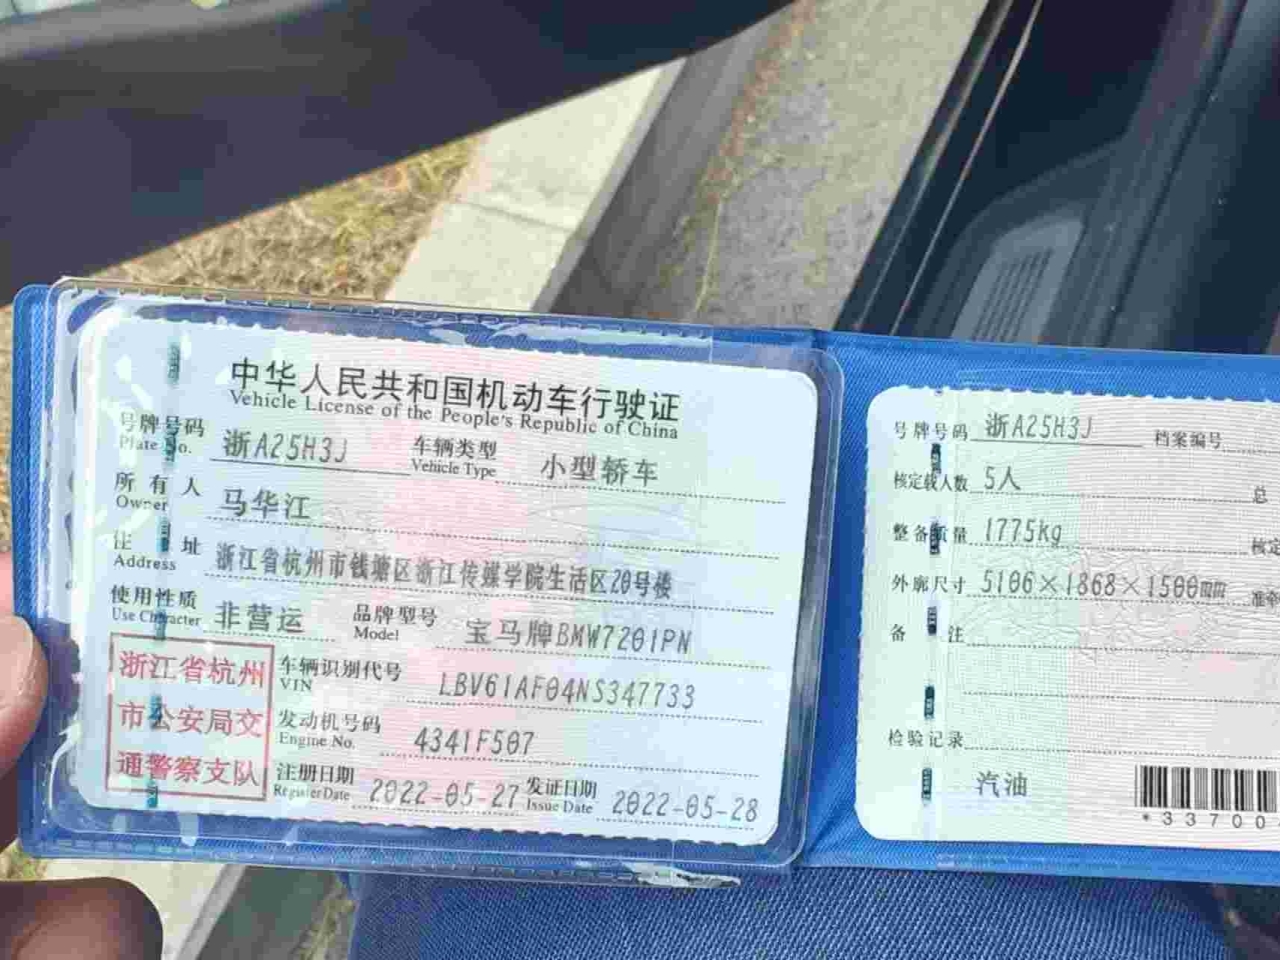 中华人民共和国机动车行驶证
Vehicle License of the People's Republic of China
号牌号码 浙A25H3J 车辆类型 小型轿车
Plate No. Vehicle Type
所有人 马华江
Owner
住址 浙江省杭州市钱塘区浙江传媒学院生活区20号楼
Address
使用性质 非营运 品牌型号 宝马牌BMW7201PN
Use Character Model
浙江省杭州
市公安局交
通警察支队
车辆识别代号 LBV61AF04NS347733
VIN
发动机号码 4341F507
Engine No.
注册日期 2022-05-27 发证日期 2022-05-28
Register Date Issue Date
号牌号码 浙A25H3J 档案编号
核定载人数 5人 总
整备质量 1775kg 核定
外廓尺寸 5106×1868×1500mm 准牵
备注
检验记录
汽油
*33700